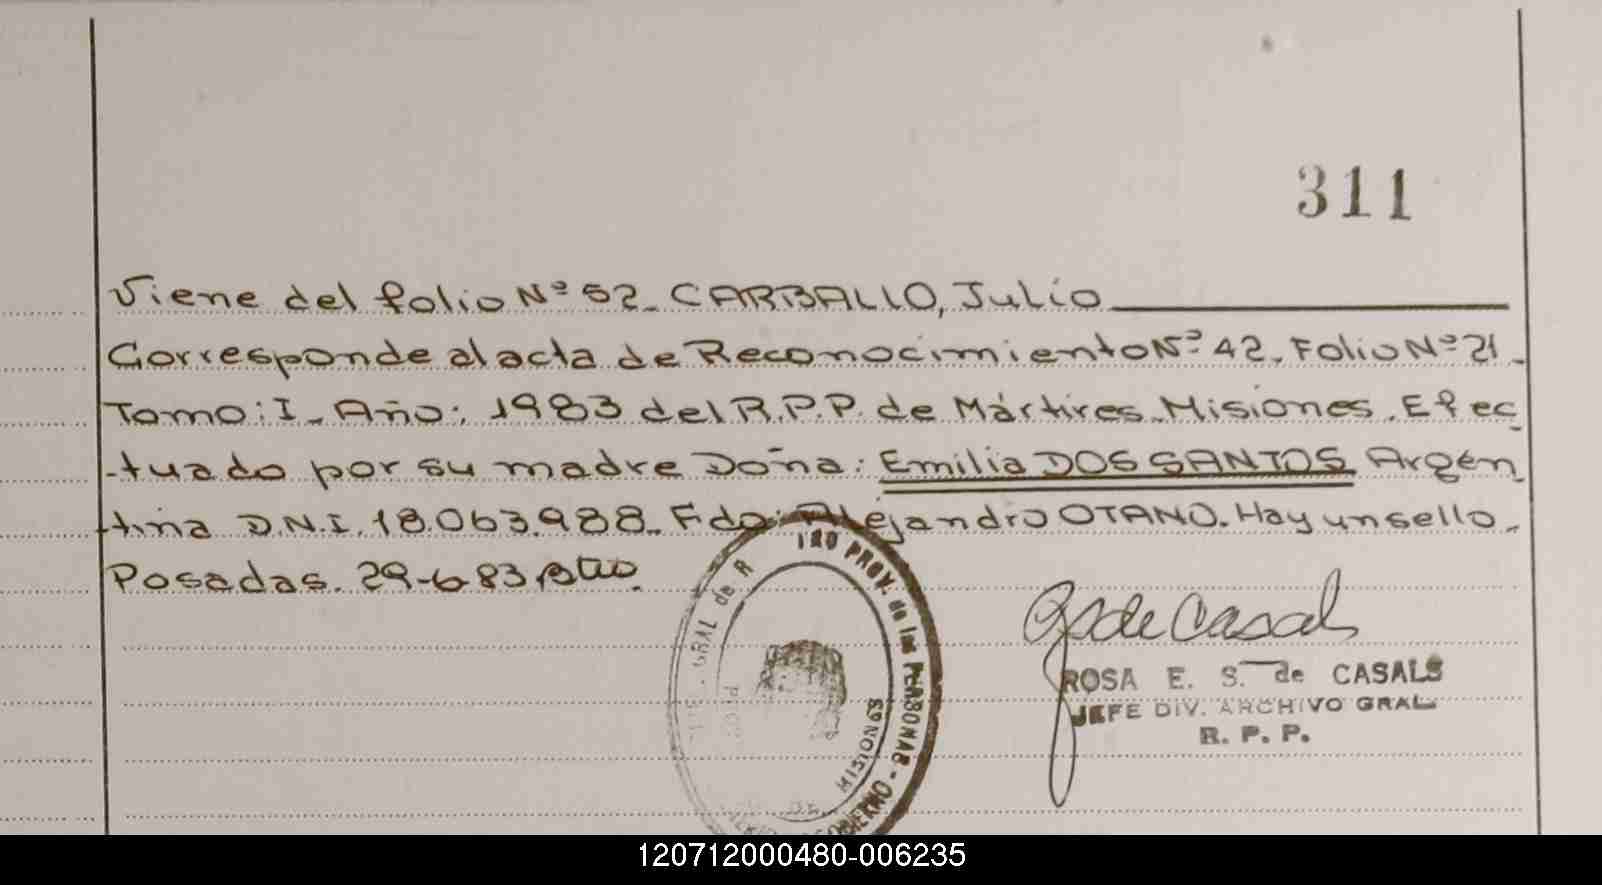 311
Viene del folio Nº 52_ CARBALLO, Julio
Corresponde al acta de Reconocimiento Nº 42. Folio Nº 21_
Tomo: I_ Año: 1983 del R.P.P. de Mártires. Misiones. Efec
tuado por su madre Doña: Emilia DOS SANTOS Argen
tina D.N.I. 18.063.988_ Fdo: Alejandro OTANO. Hay un sello_
Posadas. 29-6-83
GRAL de R
TRO PROV. de las PERSONAS - GOBIERNO
DE MISIONES
ROSA E. S. de CASALS
JEFE DIV. ARCHIVO GRAL.
R. P. P.
120712000480-006235